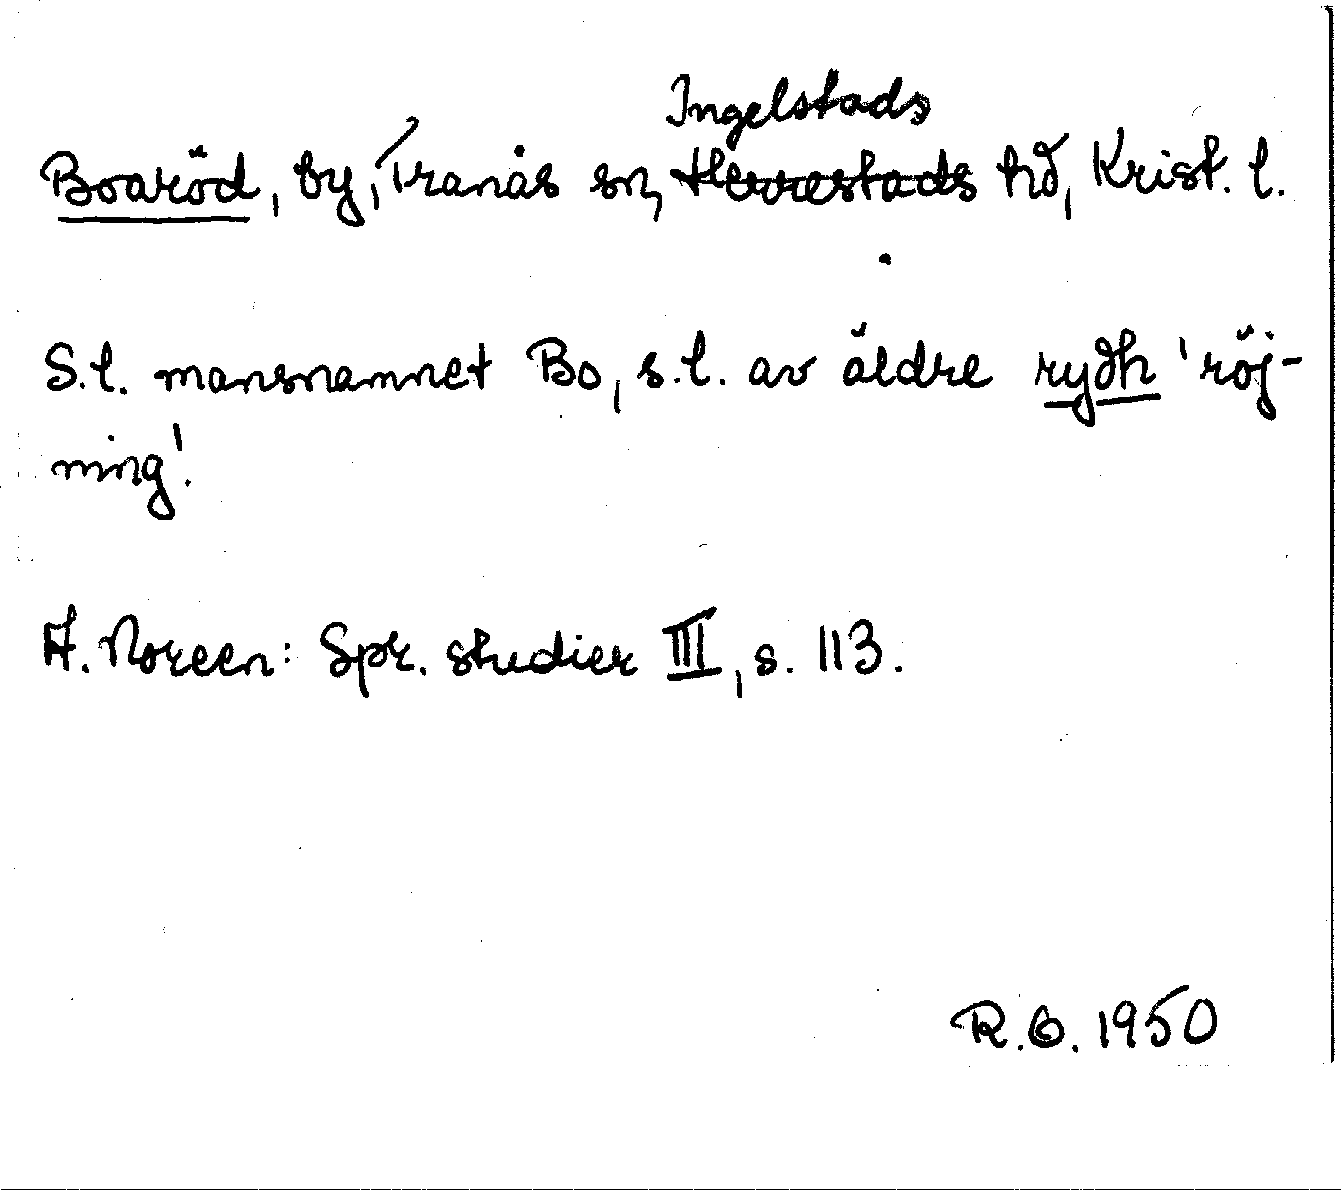 Ingelstads
Boaröd, by, Tranås sn, Herrestads hd, Krist. l.
S.l. mansnamnet Bo, s.l. av äldre rydh 'röj-
ning'.
A. Noreen: Spr. studier III, s. 113.
R.O. 1950